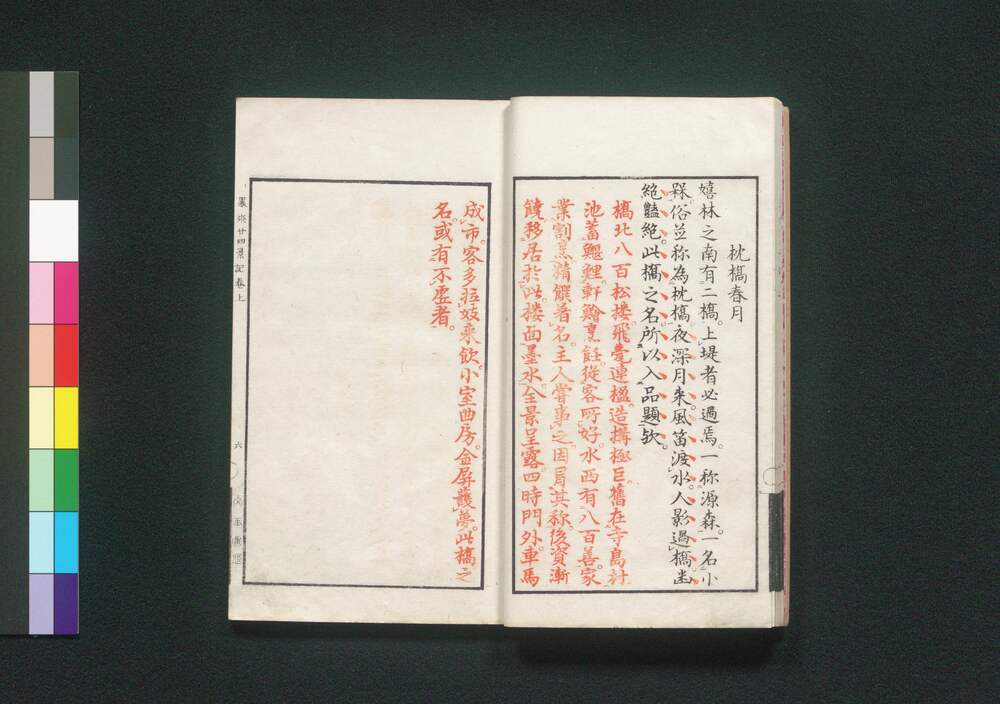 枕橋春月
嬉林之南有二橋。上堤者必過焉。一称源森。一名小
槑。俗並称為枕橋。夜深月来。風笛渡水。人影過橋。幽
絶豔絶。此橋之名所以入品題欤。
橋北八百松楼。飛甍連楹。造搆極巨。舊在寺島村
池蓄鯉。軒鱠烹飪。従客所好。水西有八百善。家
業割烹。精饌著名。主人嘗事之。因冒其称。後資漸
饒。移居於此。楼面墨水。全景呈露。四時門外。車馬
成市。客多拉妓来飲。小室曲房。金屏護夢。此橋之
名或有不虚者。
墨水廿四景記巻上
六